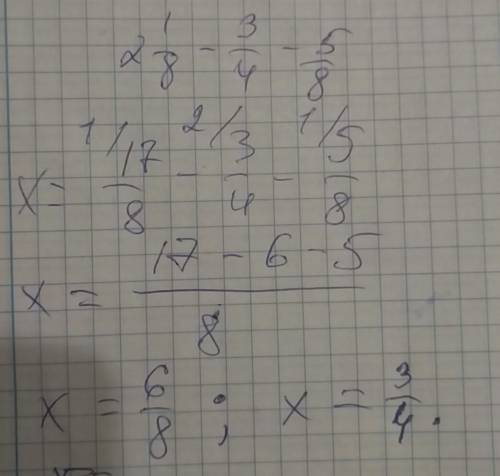 2 1/8 - 3/4 - 5/8
x = 1/ 17/8 - 2/ 3/4 - 1/ 5/8
x = (17 - 6 - 5)/8
x = 6/8 ; x = 3/4.